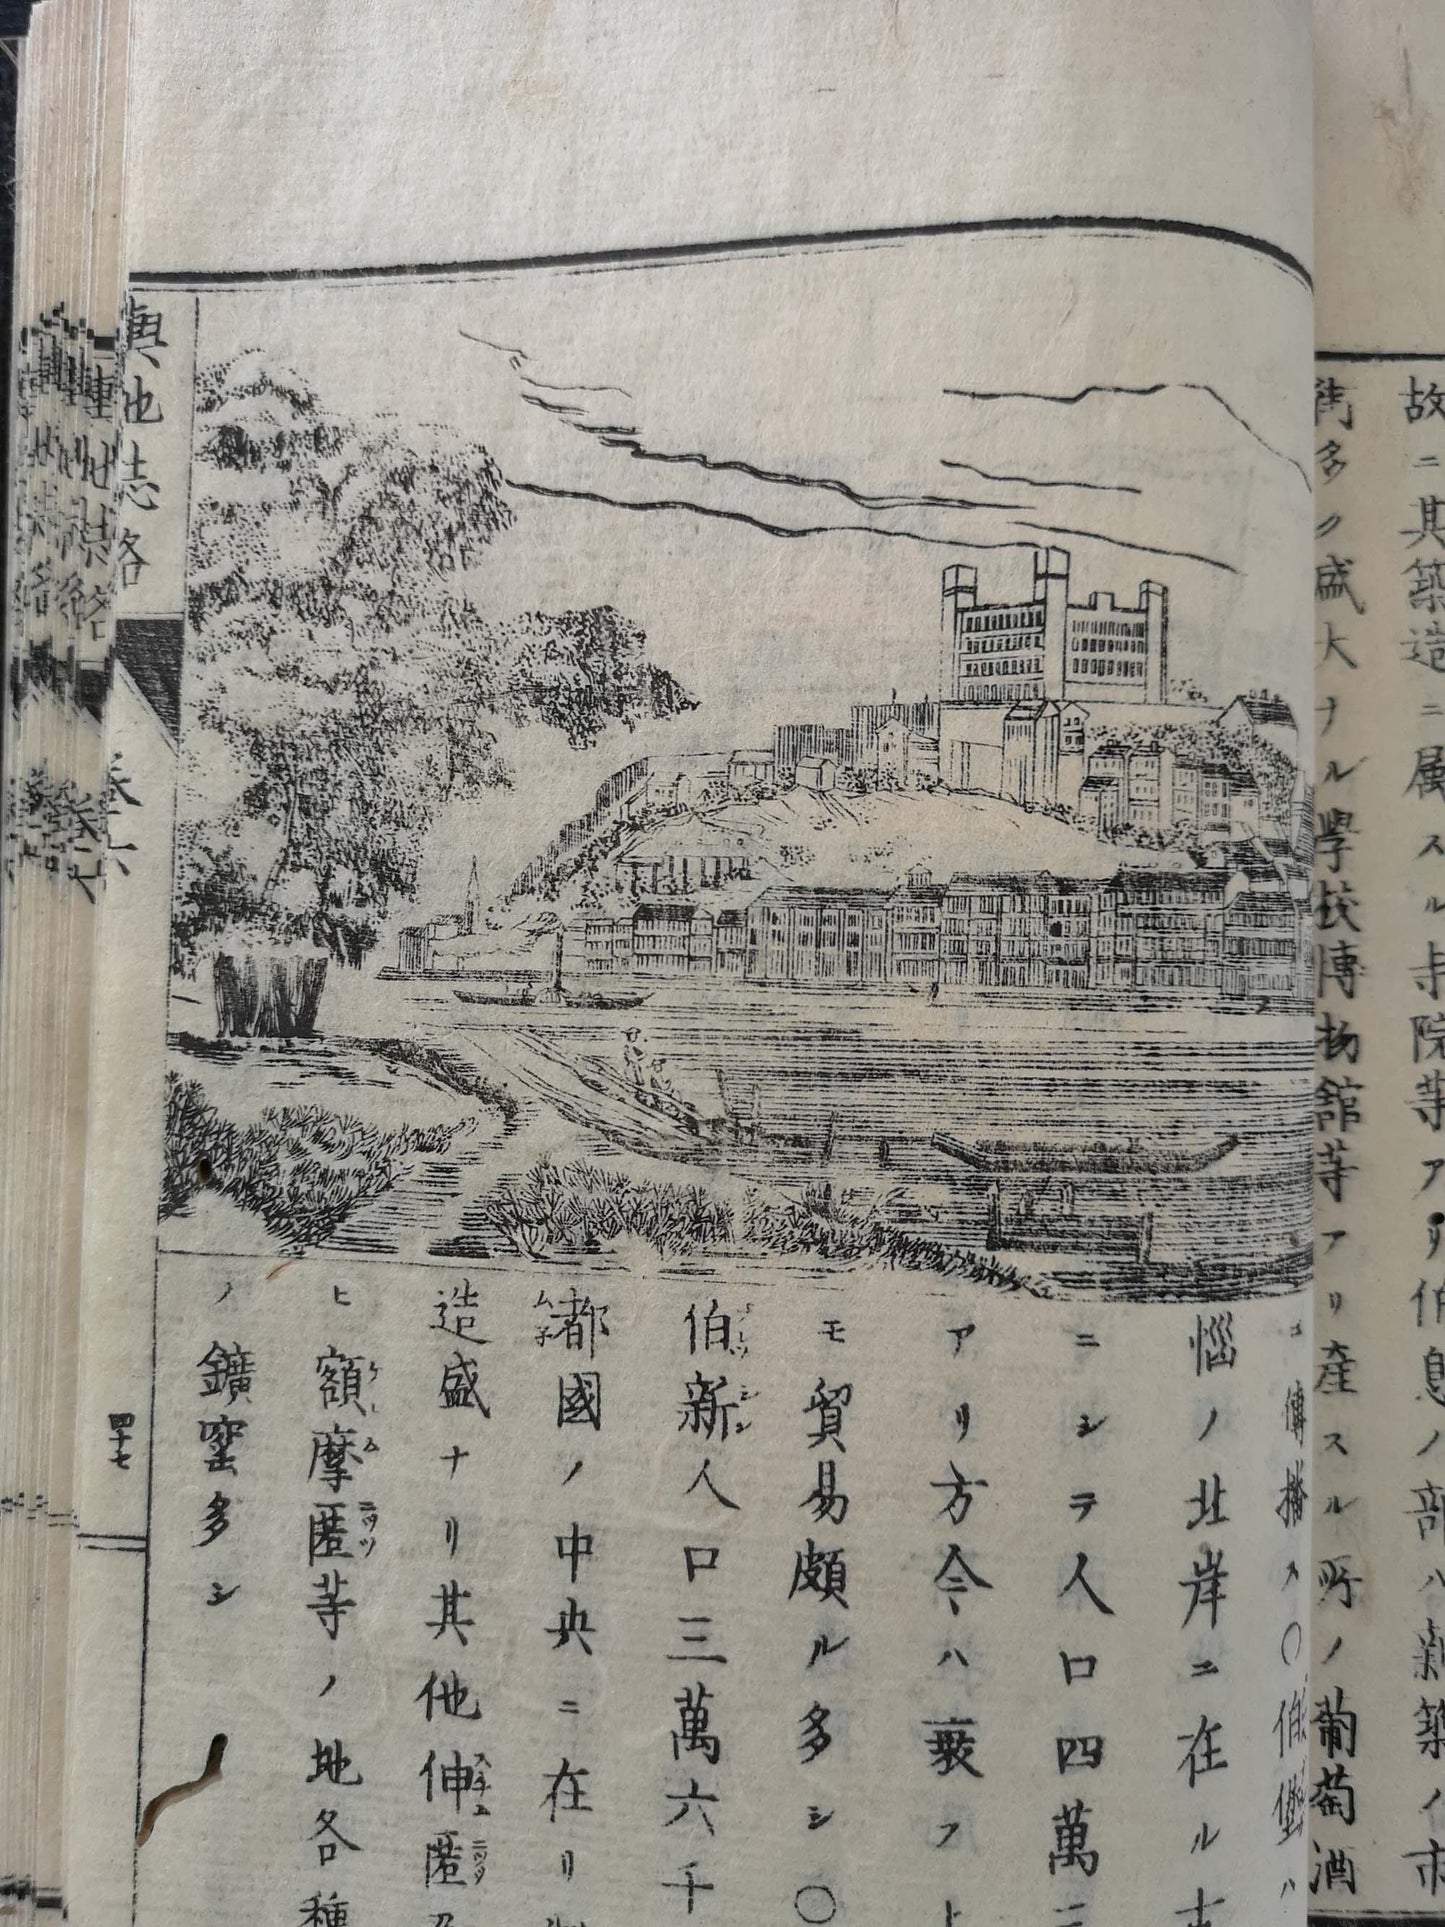 故ニ其築造ニ属スル寺院等アリ伯息ノ部ハ新築ノ市
街多ク盛大ナル學校博物館等アリ産スル所ノ葡萄酒
傳播ス〇伯
惱ノ北岸ニ在ル古
ニシテ人口四萬三
アリ方今ハ衰フト
モ貿易頗ル多シ〇
伯新人口三萬六千
都國ノ中央ニ在リ
造盛ナリ其他伸匿及
ヒ額摩匿等ノ地各種
ノ鑛窯多シ
輿地志略
卷六
四十七